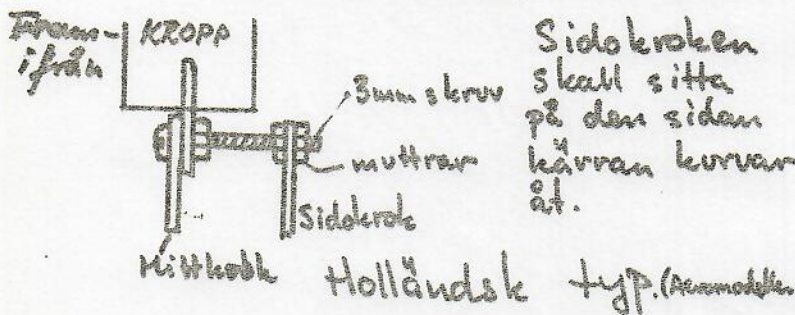 Fram-
ifrån
KROPP
3mm skruv
muttrar
Sidokrok
Mittkrok
Sidokroken
skall sitta
på den sidan
kärran kurvar
åt.
Holländsk typ. (Aeromodeller